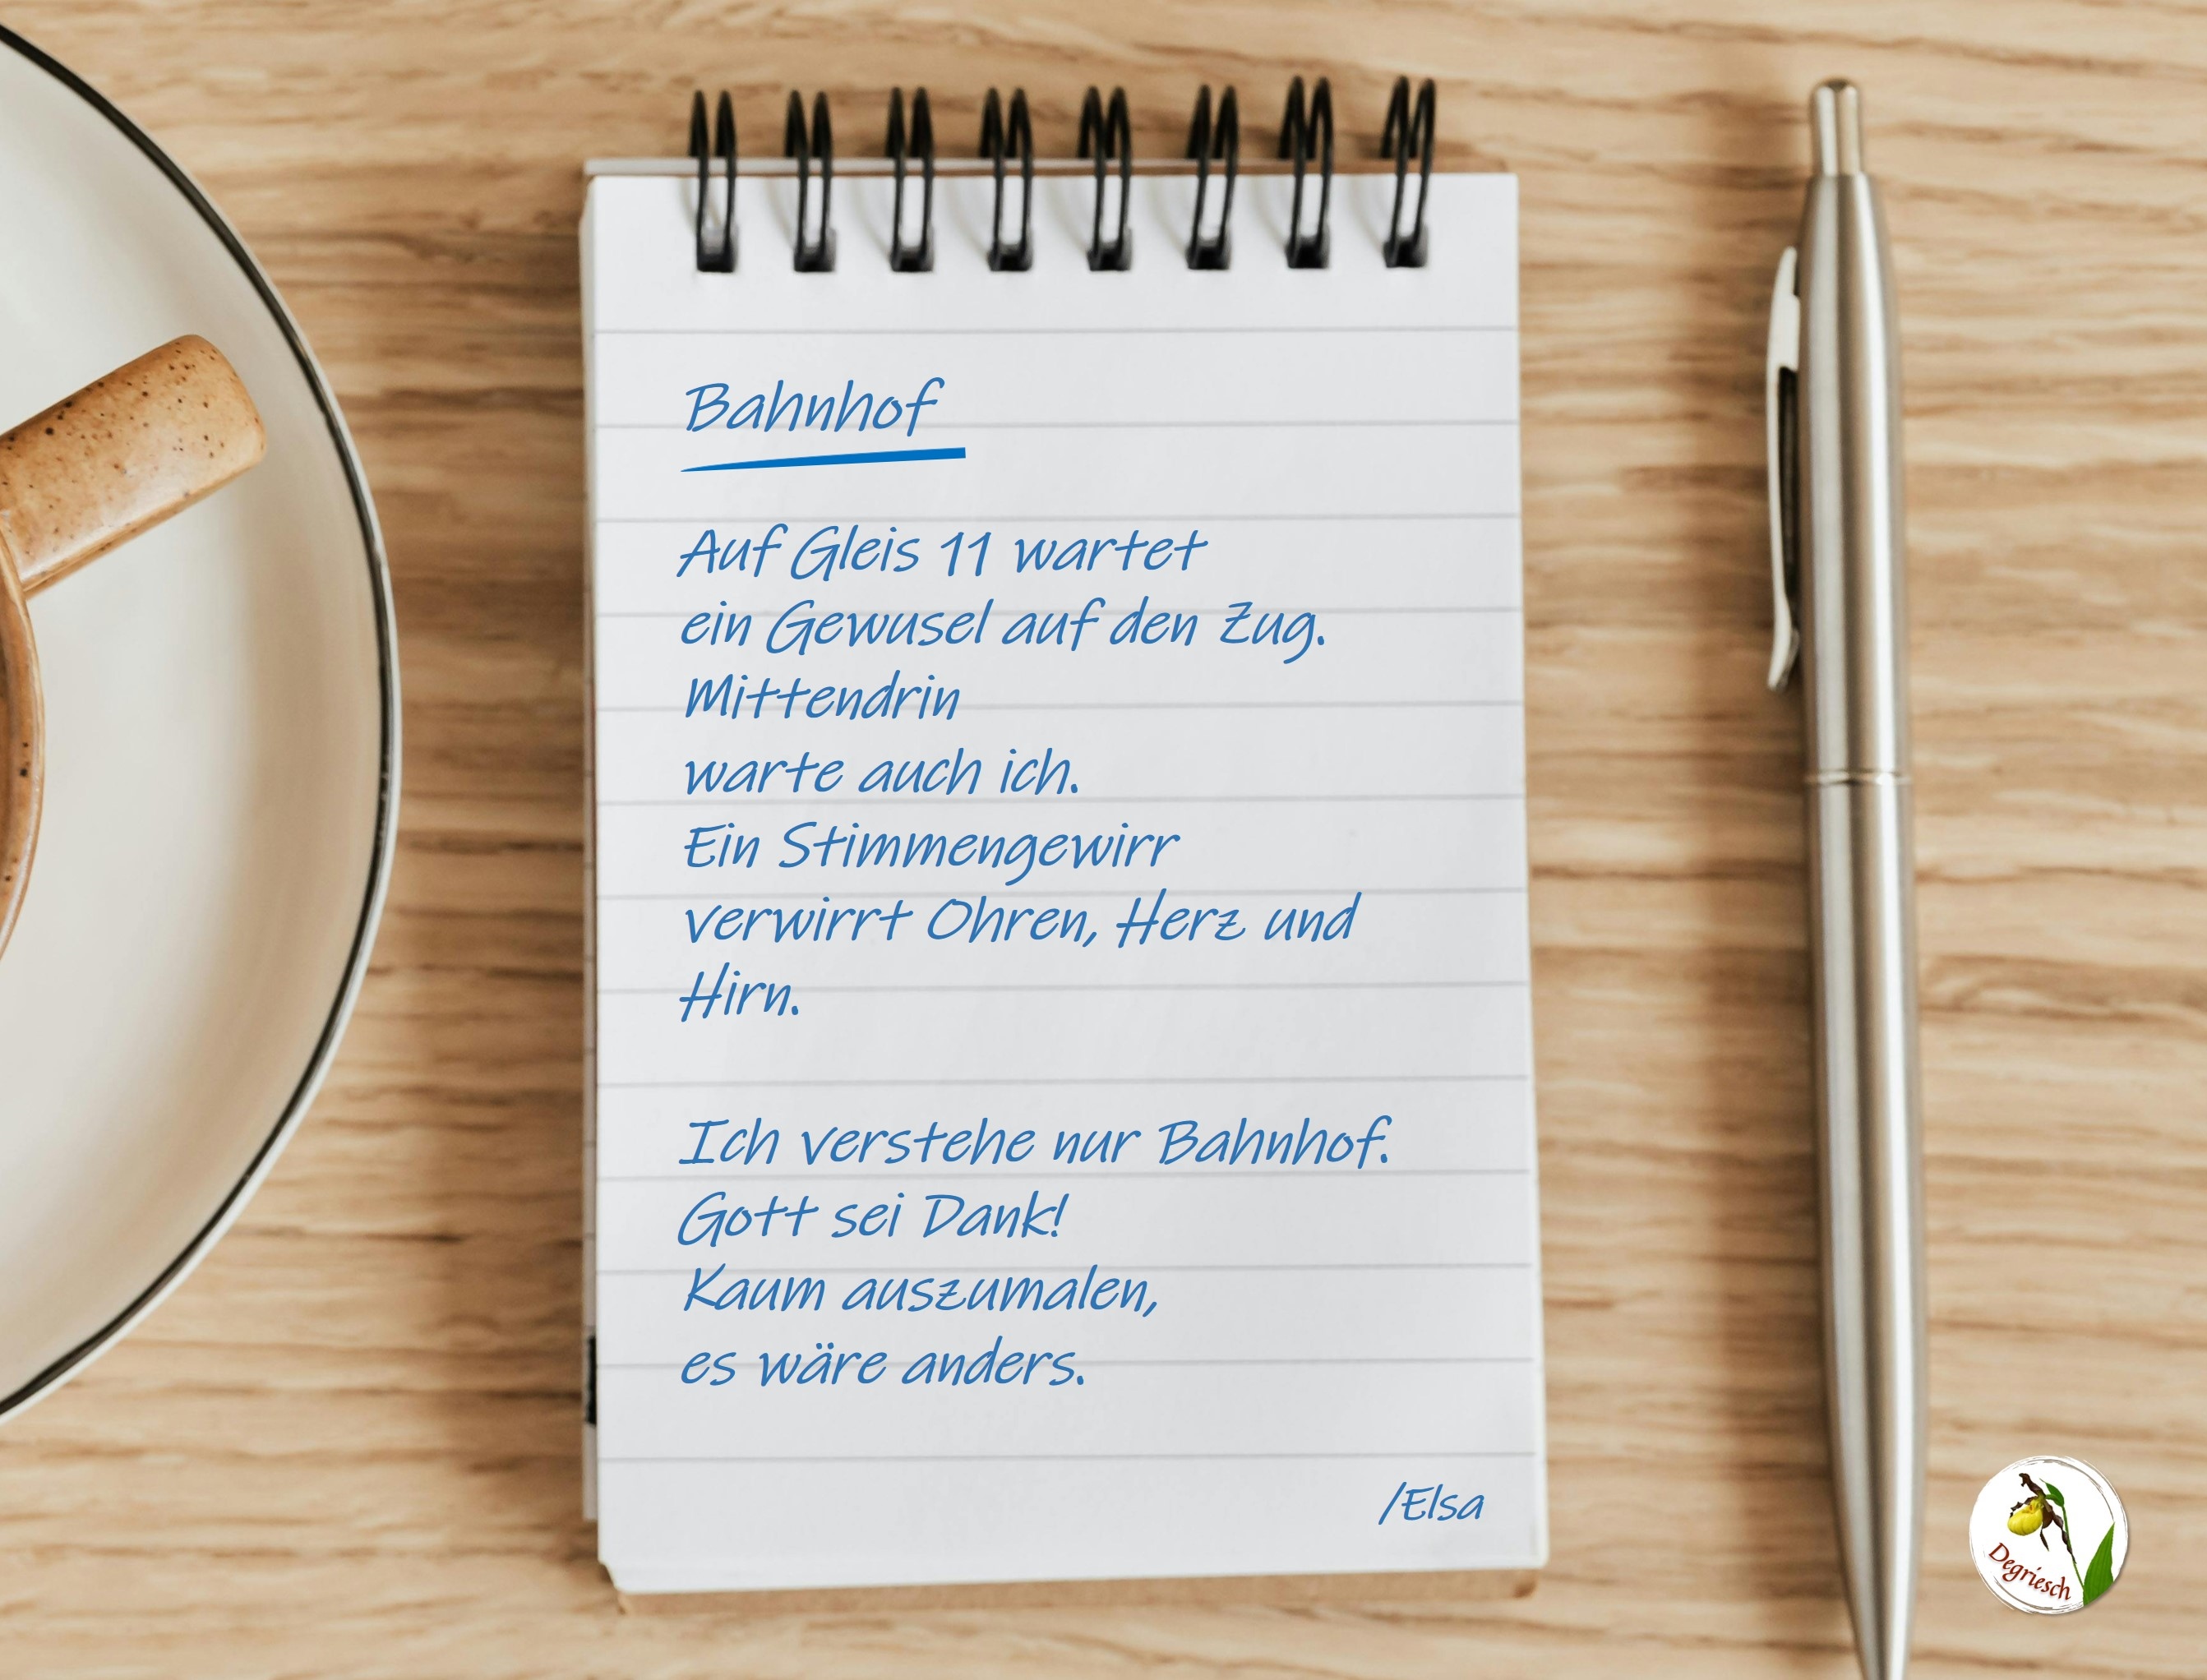 Bahnhof
Auf Gleis 11 wartet
ein Gewusel auf den Zug.
Mittendrin
warte auch ich.
Ein Stimmengewirr
verwirrt Ohren, Herz und
Hirn.
Ich verstehe nur Bahnhof.
Gott sei Dank!
Kaum auszumalen,
es wäre anders.
/Elsa
Degriesch